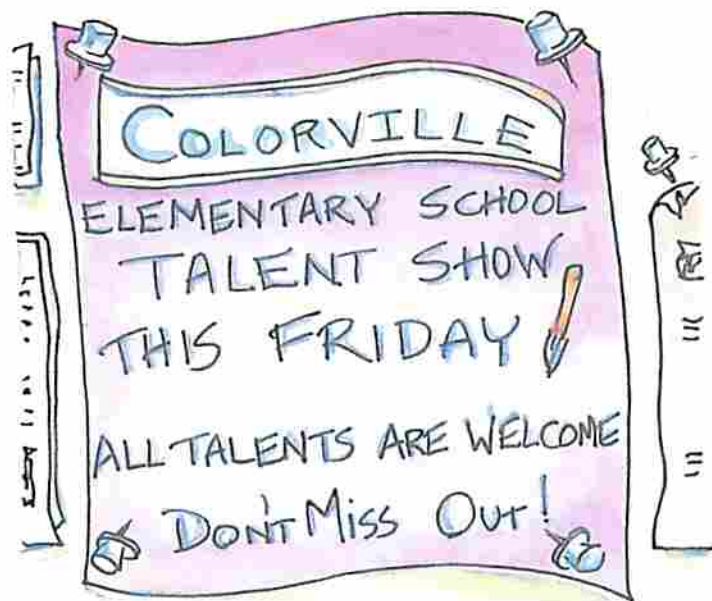 COLORVILLE
ELEMENTARY SCHOOL
TALENT SHOW
THIS FRIDAY
ALL TALENTS ARE WELCOME
DON'T MISS OUT!